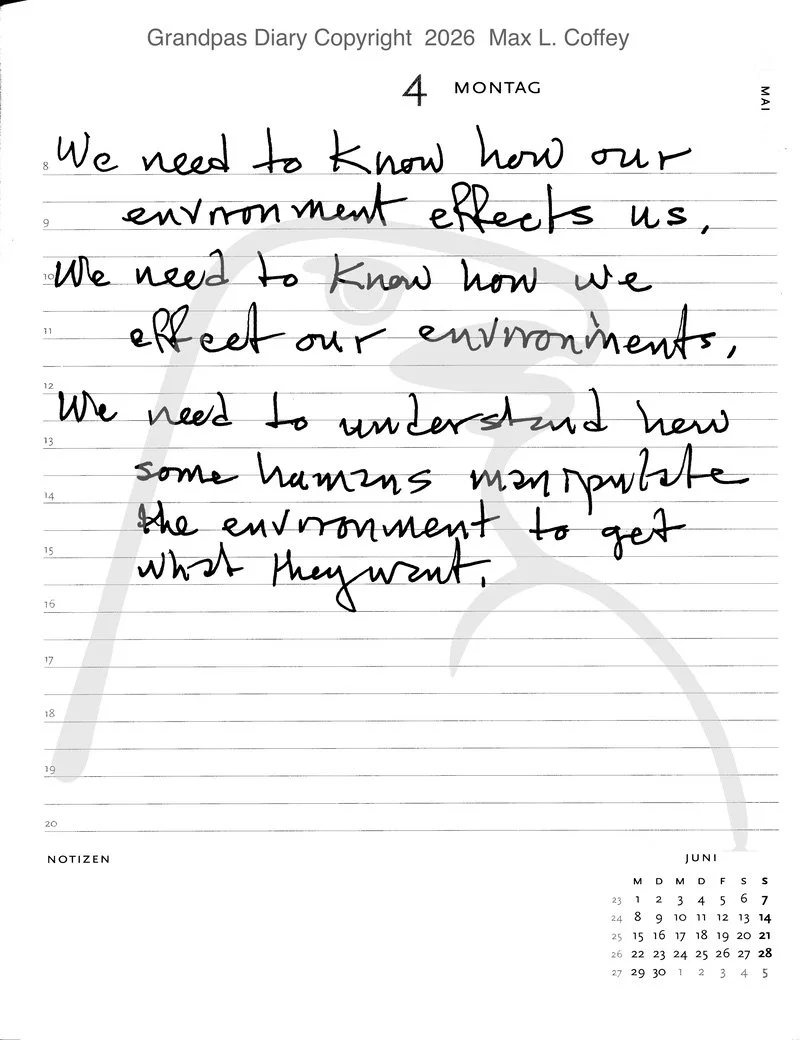 Grandpas Diary Copyright 2026 Max L. Coffey
4 MONTAG
MAI
8 We need to know how our
9 envronment effects us,
10 We need to know how we
11 effect our envronments,
12 We need to understand how
13 some humans manipulate
14 the envronment to get
15 what they want.
16
17
18
19
20
NOTIZEN
JUNI
M D M D F S S
23 1 2 3 4 5 6 7
24 8 9 10 11 12 13 14
25 15 16 17 18 19 20 21
26 22 23 24 25 26 27 28
27 29 30 1 2 3 4 5